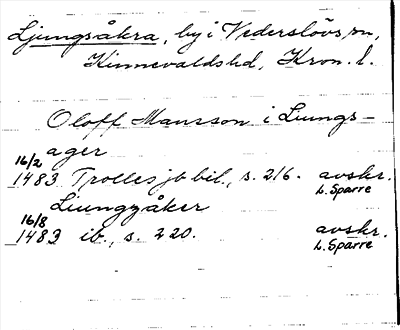 Ljungsåkra, by i Vederslövs sn,
Kinnevalds hd, Kron. l.
Oloff Mansson i Liungs-
ager
16/2
1483 Trolles jb bil., s. 216. avskr.
L. Sparre
Liungzåker
16/8
1483 ib., s. 220. avskr.
L. Sparre